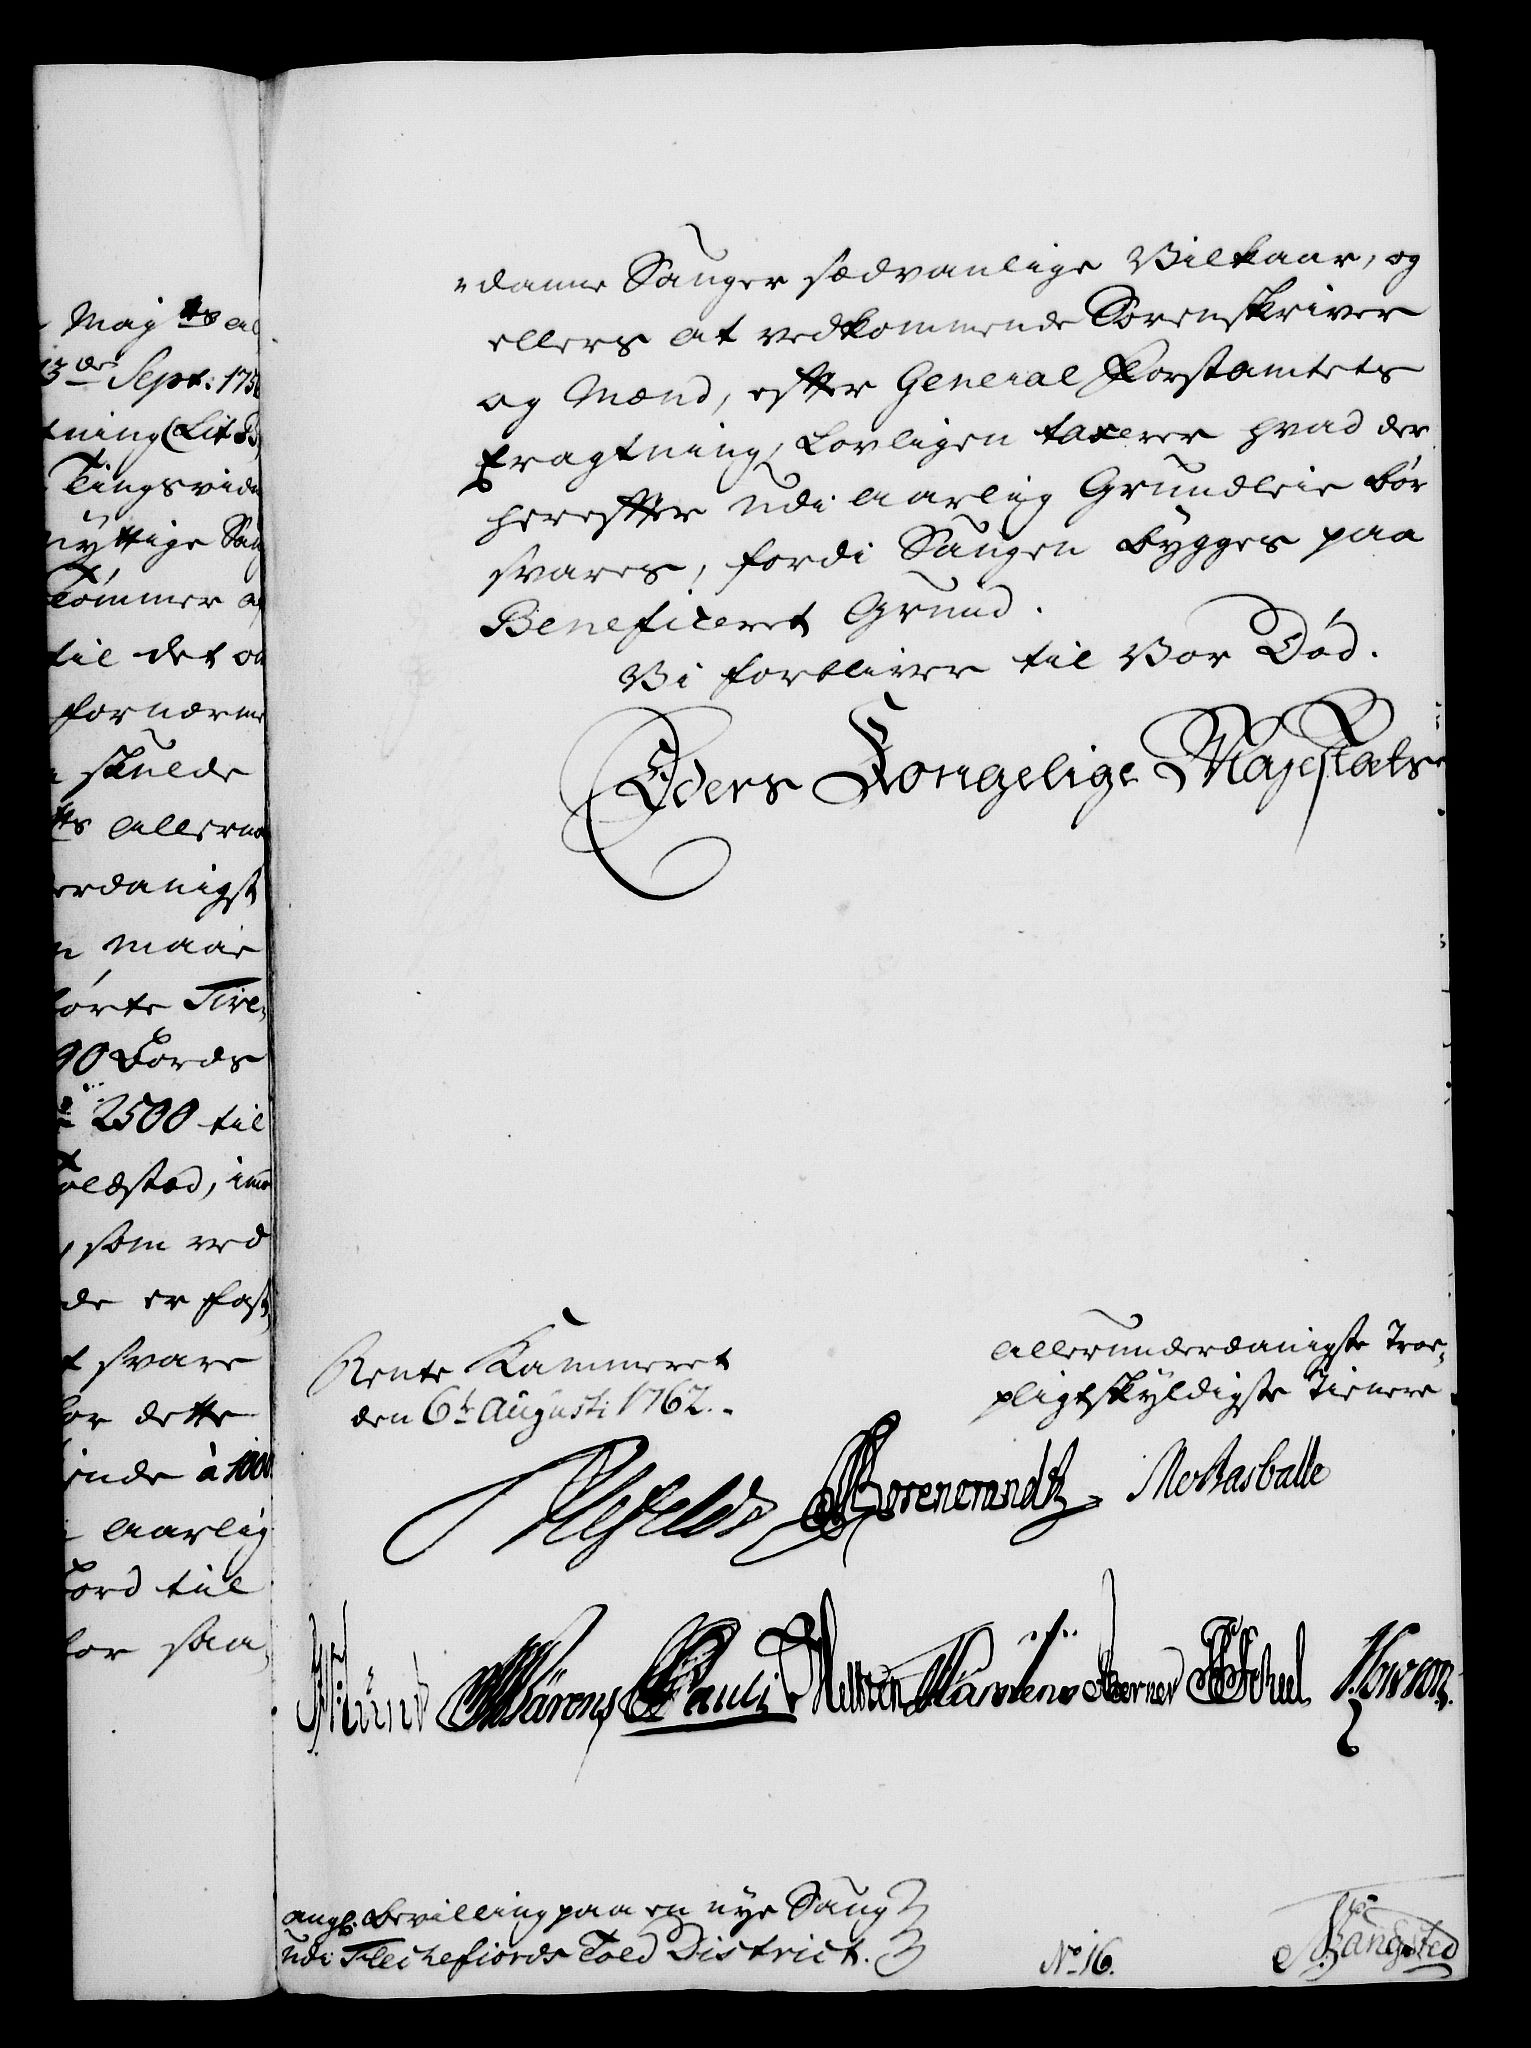 Maj ts al
13de Sept: 175
tning (Lit B
Tingsvid
nyttige Sau
Tømmer og
til det om
fornærme
skulde
ts allerna
erdanigst
n maae
førte Fire,
90 Bords
2500 til
oldstæd, imo
som ved
de er fast
t svare
for dette
ende à 1000
aarlig
Bord til
for saa,
"danne Sauger sædvanlige Vilkaar, og
ellers at vedkommende Sorenskriver
og Mænd, efter General Forstamtets
Fragtning, Lovligen taxerer hvad der
herefter udi aarlig Grundleie bør
svares, fordi Saugen bygges paa
Beneficeret Grund.
Vi forbliver til Vor Død.
Eders Kongelige Majestæts
Rente Kammeret
den 6t Augusti 1762.
allerunderdanigste Troe,
pligtskyldigste Tienere
Ahlefeldt
Münd Wärens Pauli
ang: Bevilling paa en nye Saug
udi Flechefiords Told District.
No 16.
Bangsted